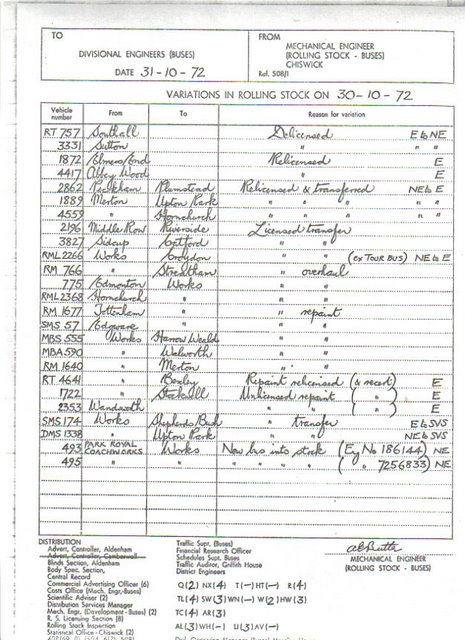 TO
DIVISIONAL ENGINEERS (BUSES)
DATE 31-10-72
FROM
MECHANICAL ENGINEER
(ROLLING STOCK - BUSES)
CHISWICK
Ref. 508/1
VARIATIONS IN ROLLING STOCK ON 30-10-72
Vehicle number From To Reason for variation
RT 757 Southall Delicensed E to NE
3331 Sutton " " "
1872 Elmers End Relicensed E
4417 Abbey Wood " E
2862 Peckham Plumstead Relicensed & transferred NE to E
1889 Merton Upton Park " " " "
4559 " Hornchurch " " " "
2196 Middle Row Riverside Licensed transfer
3827 Sidcup Catford " "
RML 2266 Works Croydon " " (ex TOUR BUS) NE to E
RM 766 " Streatham " overhaul
775 Edmonton Works " "
RML 2368 Hornchurch " " "
RM 1677 Tottenham " " repaint
SMS 57 Edgware " " "
MBS 555 Works Harrow Weald " "
MBA 590 " Walworth " "
RM 1640 " Merton " "
RT 4641 " Bexley Repaint relicensed (& recert) E
1722 " Stockwell Unlicensed repaint ( " ) E
2353 Wandsworth " " " ( " ) E
SMS 174 Works Shepherds Bush " transfer E to SVS
DMS 1338 " Upton Park " " NE to SVS
493 PARK ROYAL COACHWORKS Works New bus into stock (Eng No 186144) NE
495 " " " " " " ( " 7256833) NE
DISTRIBUTION
Advert, Controller, Aldenham
Advert, Controller, Camberwell
Blinds Section, Aldenham
Body Spec. Section,
Central Record
Commercial Advertising Officer (6)
Costs Office (Mech. Engr.-Buses)
Scientific Adviser (2)
Distribution Services Manager
Mech. Engr. (Development - Buses) (2)
R. S. Licensing Section (8)
Rolling Stock Inspection
Statistical Office - Chiswick (2)
Traffic Supt. (Buses)
Financial Research Officer
Schedules Supt. Buses
Traffic Auditor, Griffith House
District Engineers
Q(2) NX(4) T(-) HT(-) R(4)
TL(4) SW(3) WN(-) W(2) HW(3)
TC(4) AR(3)
AL(3) WH(-) U(3) AV(-)
MECHANICAL ENGINEER
(ROLLING STOCK - BUSES)